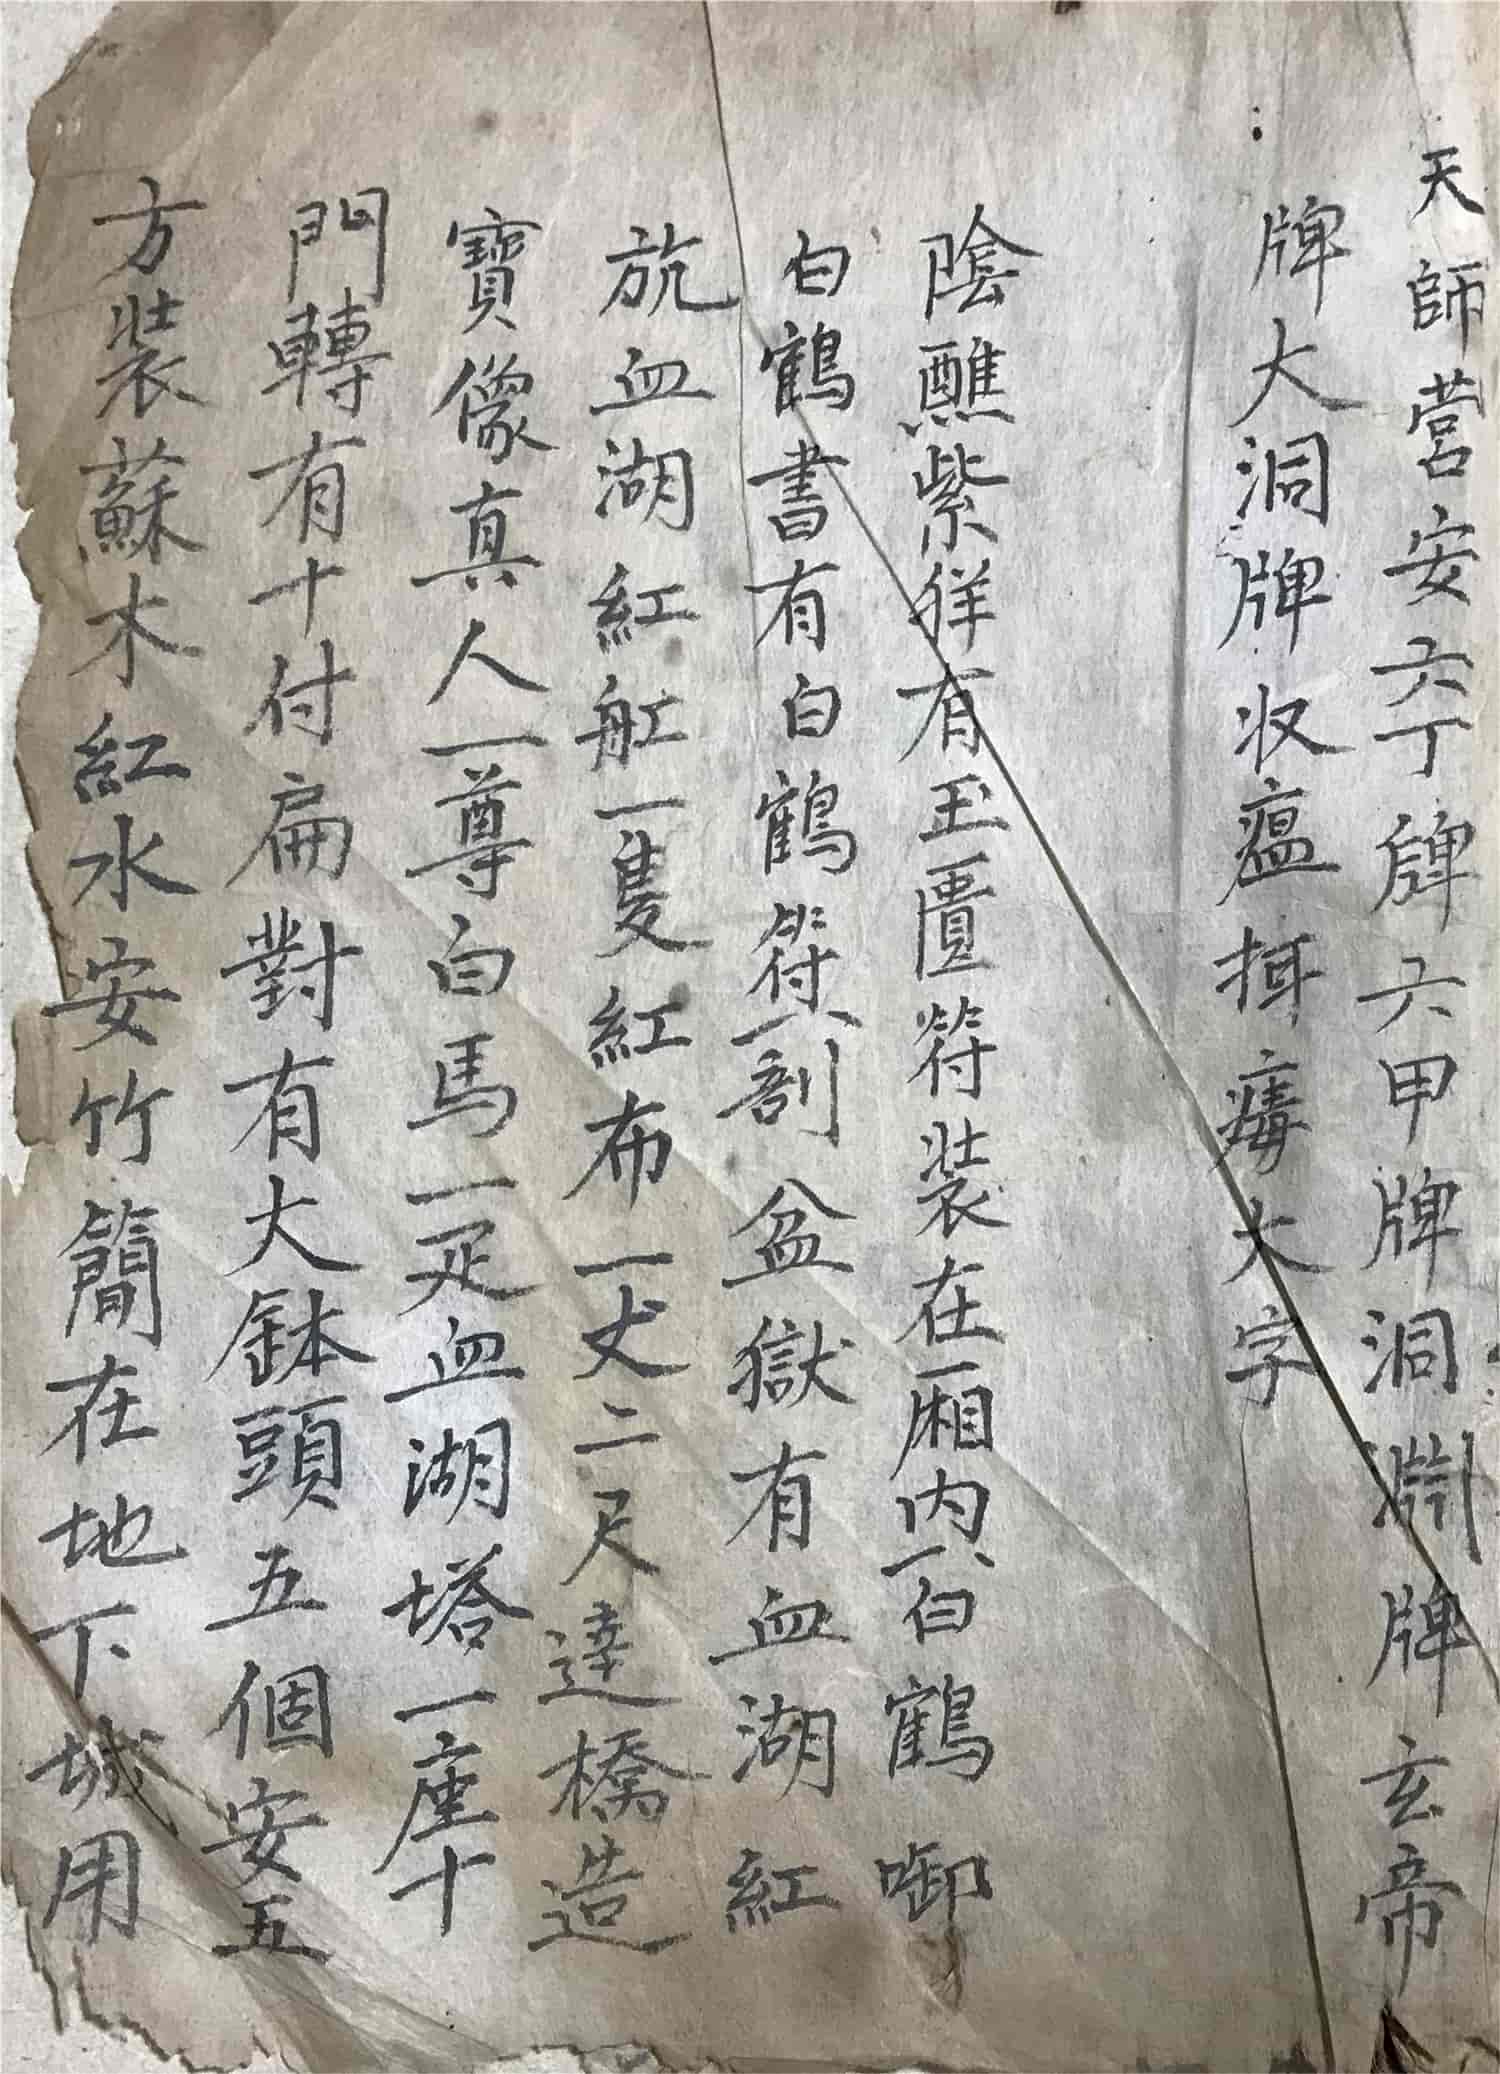 天師營安六丁牌六甲牌洞淵牌玄帝
牌大洞牌收瘟 毒大字
陰醮紫 有玉匱符裝在一廂內一白鶴啣
白鶴書有白鶴符一剖盆獄有血湖紅
旂血湖紅舡一隻紅布一丈二尺達橋造
寶像真人一尊白馬一疋血湖塔一座十
門轉有十付扁對有大鉢頭五個安五
方裝蘇木紅水安竹簡在地下城用